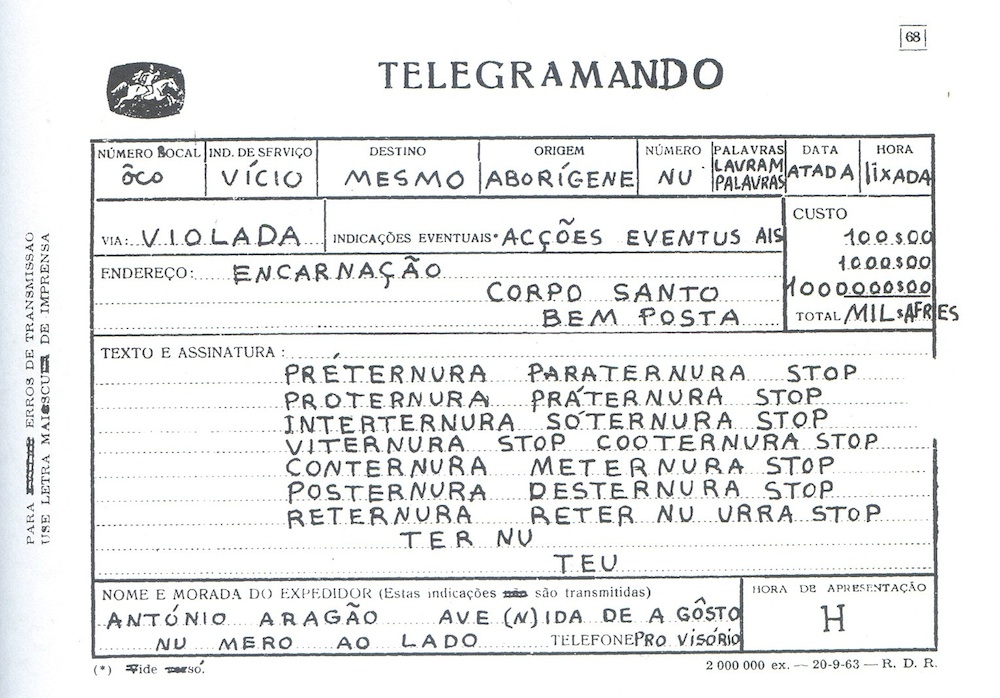 68
TELEGRAMANDO
NÚMERO BOCAL
ÔCO
IND. DE SERVIÇO
VÍCIO
DESTINO
MESMO
ORIGEM
ABORÍGENE
NÚMERO
NU
PALAVRAS
LAVRAM
PALAVRAS
DATA
ATADA
HORA
liXADA
VIA: VIOLADA
INDICAÇÕES EVENTUAIS* ACÇÕES EVENTUS AIS
CUSTO
100$00
1000$00
1000000$00
TOTAL MIL$AFRES
ENDEREÇO: ENCARNAÇÃO
CORPO SANTO
BEM POSTA
TEXTO E ASSINATURA:
PRÉTERNURA PARATERNURA STOP
PROTERNURA PRÁTERNURA STOP
INTERTERNURA SÓTERNURA STOP
VITERNURA STOP COOTERNURA STOP
CONTERNURA METERNURA STOP
POSTERNURA DESTERNURA STOP
RETERNURA RETER NU URRA STOP
TER NU
TEU
NOME E MORADA DO EXPEDIDOR (Estas indicações são transmitidas)
ANTÓNIO ARAGÃO AVE (N)IDA DE A GÔSTO
NU MERO AO LADO TELEFONE PRO VISÓRIO
HORA DE APRESENTAÇÃO
H
(*) Vide
2 000 000 ex. — 20-9-63 — R. D. R.
PARA ERROS DE TRANSMISSÃO
USE LETRA DE IMPRENSA